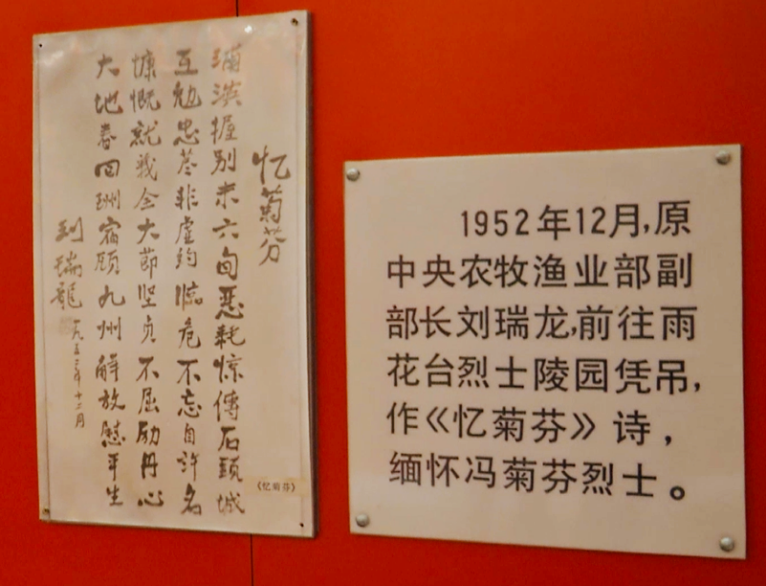 忆菊芬
握别未六旬恶耗惊傳石頭城
互勉忠荩非虚约临危不忘自许名
慷慨就義全大節坚贞不屈励丹心
大地春回酬宿願九州解放慰平生
刘瑞龍 一九五二年十二月
《忆菊芬》
1952年12月,原
中央农牧渔业部副
部长刘瑞龙,前往雨
花台烈士陵园凭吊,
作《忆菊芬》诗,
缅怀冯菊芬烈士。